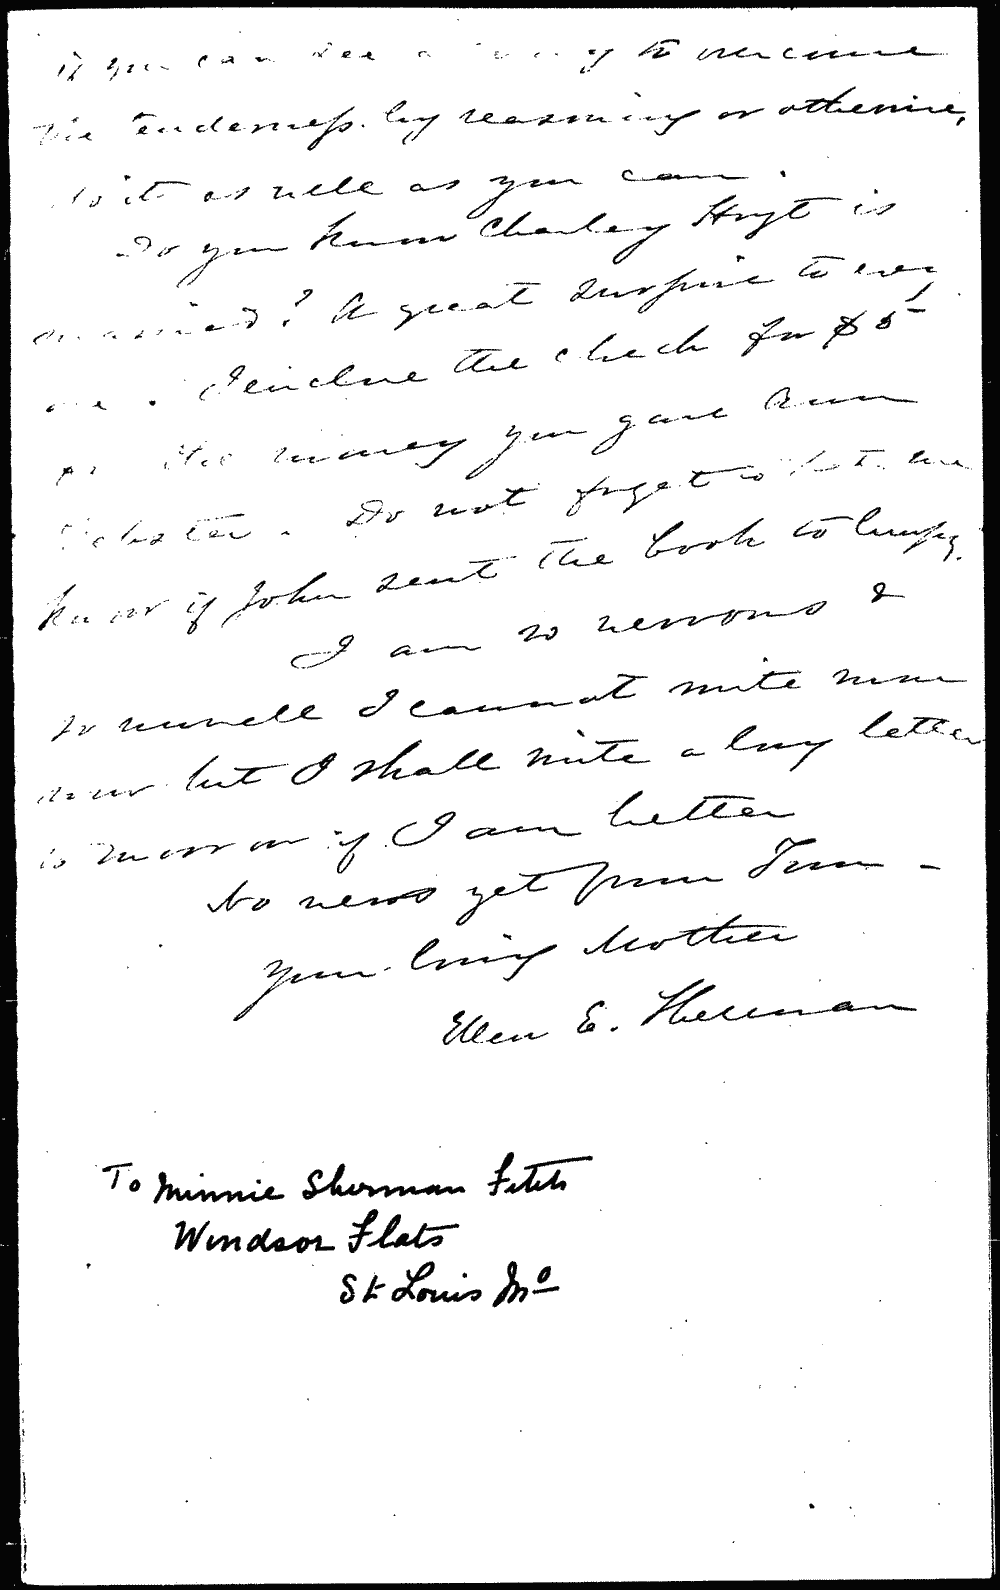 if you can see a way to overcome
the tenderness by reasoning or otherwise,
do it as well as you can.
Do you know Charley Hoyt is
married? A great surprise to every
one. I enclose the check for $5
for the money you gave Ann
Webster. Do not forget to let me
know if John sent the book to
I am so nervous &
so unwell I cannot write more
now but I shall write a long letter
to morrow if I am better
No news yet from Tom -
your loving Mother
Ellen E. Sherman
To Minnie Sherman Fitch
Windsor Flats
St Louis Mo